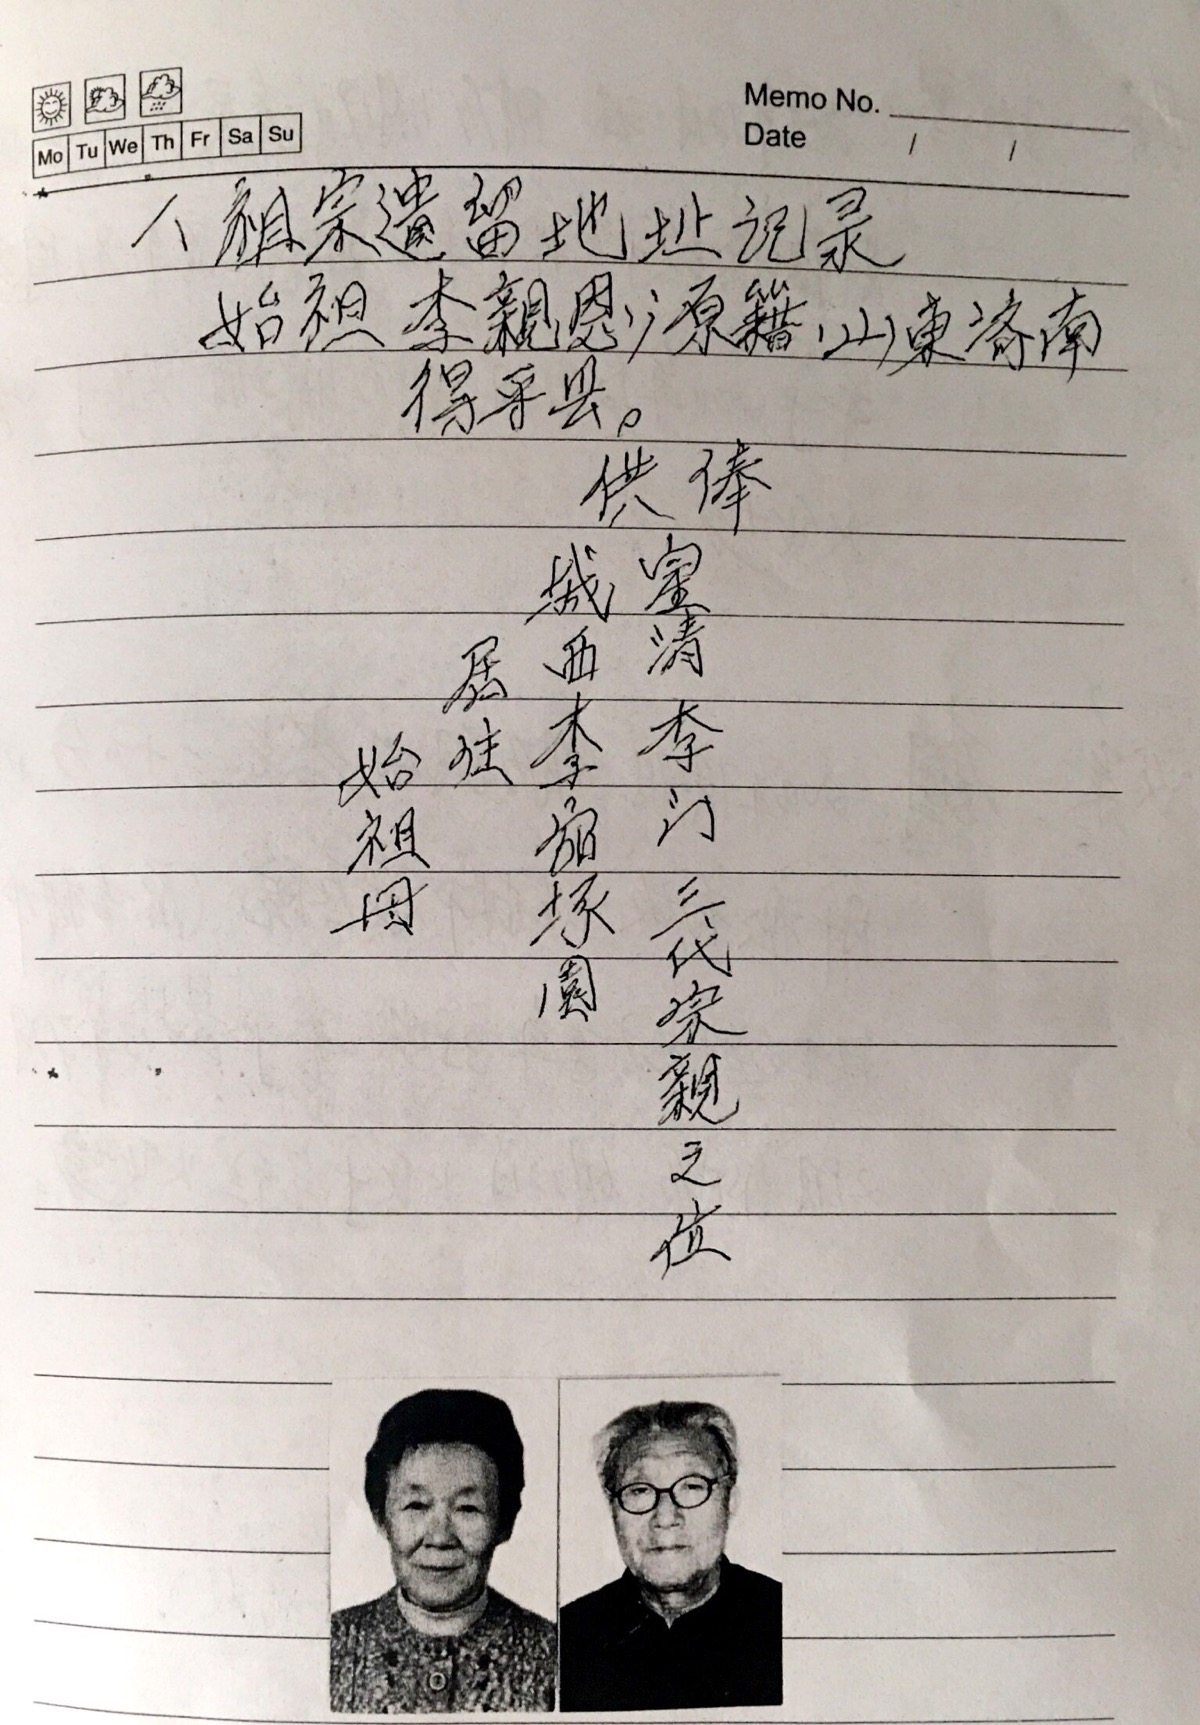 Memo No.
Date / /
Mo Tu We Th Fr Sa Su
八祖宗遗留地址记录
始祖李親恩,源籍山東济南
得平县。
供俸
皇清李门三代宗親之位
城西李家塚園
居住
始祖母